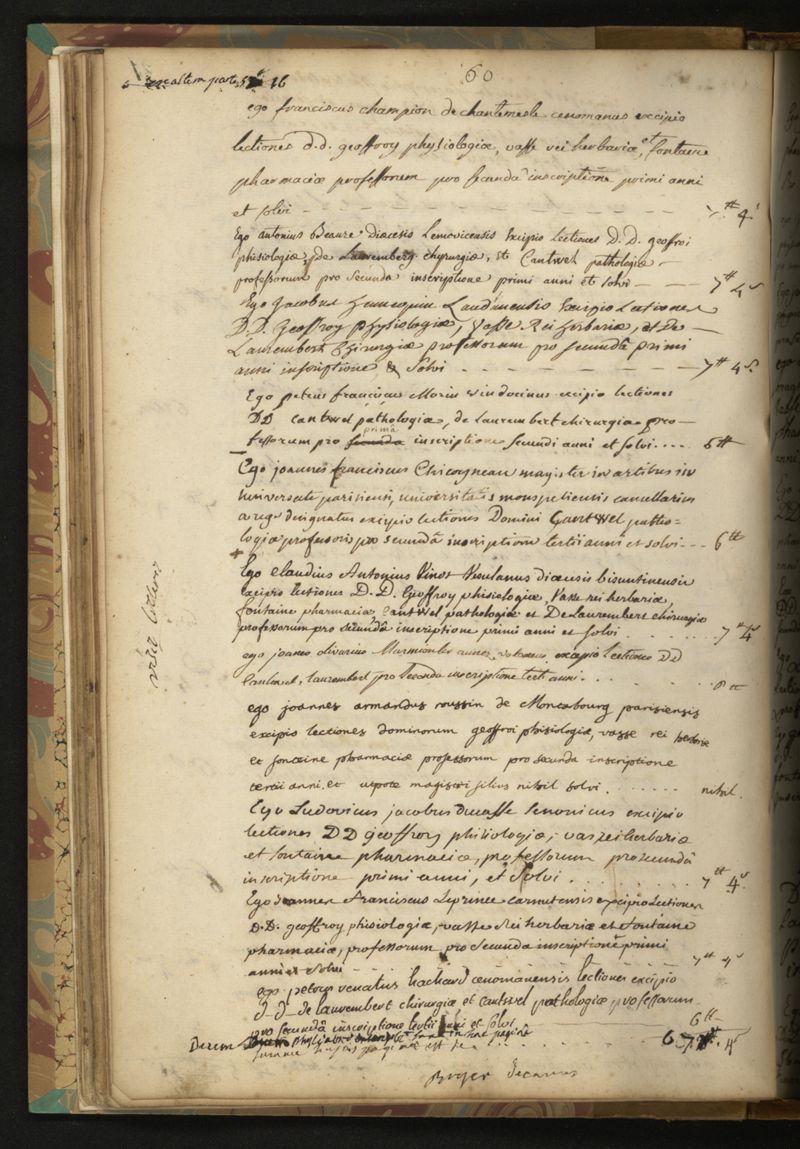 60
ego franciscus champion de chantemesle cenomanus excipio
lectiones d.d. geoffroy physiologiæ, vasse rei herbariæ, et fontaine
pharmaciæ professorum pro secunda inscriptione primi anni
et solvi 7 ᵗᵗ 4 ˢ
Ego antonius Beaure Diœcesis Lemovicensis Excipio Lectiones D. D. geoffroi
phisiologiæ, de Laurembert chyrurgiæ, et Cantwel pathologiæ
professorum pro secunda inscriptione primi anni et solvi 7 ᵗᵗ 4 ˢ
Ego Jacobus hennequin Laudunensis Excipio Lectiones
D.D. Geoffroy physiologiæ, Vasse Rei herbariæ, et De
Laurembert Chirurgiæ professorum pro secundâ primi
anni inscriptione & Solvi 7 ᵗᵗ 4 ˢ.
Ego petrus franciscus Morin vindocinus excipio lectiones
DD cantwel pathologiæ, de Laurembert chirurgiæ pro-
fessorum pro secunda primâ inscriptione secundi anni et solvi.... 6 ᵗᵗ
Ego joannes franciscus Chicoyneau magister in artibus in
universitate parisiensi, universitatis monspeliensis cancellarius
a rege designatus excipio lectiones Domini Cantwel patho=
logiæ professoris pro secundâ inscriptione tertii anni et solvi--- 6 ᵗᵗ
Ego Claudius Antonius Vinot Vesulanus diœcesis bisuntinensis
excipio lectiones D.D. Geoffroy phisiologiæ, Vasse rei herbariæ,
fontaine pharmaciæ, Cantwel pathologiæ et De Laurembert chirurgiæ
professorum pro secundâ inscriptione primi anni et solvi 7 ᵗᵗ 4 ˢ
ego joannes olivarius excipio Lectiones DD
laurembert pro secunda inscriptione tertii anni 6 ᵗᵗ
ego joannes armandus roussin de Montabourg parisiensis
excipio lectiones dominorum geoffroi phisiologiæ, vasse rei herbariæ
et fontaine pharmaciæ professorum pro secunda inscriptione
tertii anni, et utpote magistri filius nihil solvi. nihil.
Ego Ludovicus jacobus Ducasse Senonicus excipio
lectiones DD geoffroy phisiologiæ, vas rei herbariæ
et fontaine pharmaciæ, professorum pro secundâ
inscriptione primi anni, et Solvi 7 ᵗᵗ 4 ˢ
Ego Joannes Franciscus Leprince carnutensis excipio Lectiones
D.D. geoffroy phisiologiæ, vasse Rei herbariæ et fontaine
pharmaciæ, professorum pro Secunda inscriptione primi
anni et Solvi 7 ᵗᵗ 4 ˢ
ego petrus renatus hachard cœnomanensis lectiones excipio
d.d. de laurembert chirurgiæ et cantwel pathologiæ professorum
pro secundâ inscriptione tertii anni et solvi 6 ᵗᵗ
summa hujus paginæ est 67 ᵗᵗ 4 ˢ
Boyer Decanus